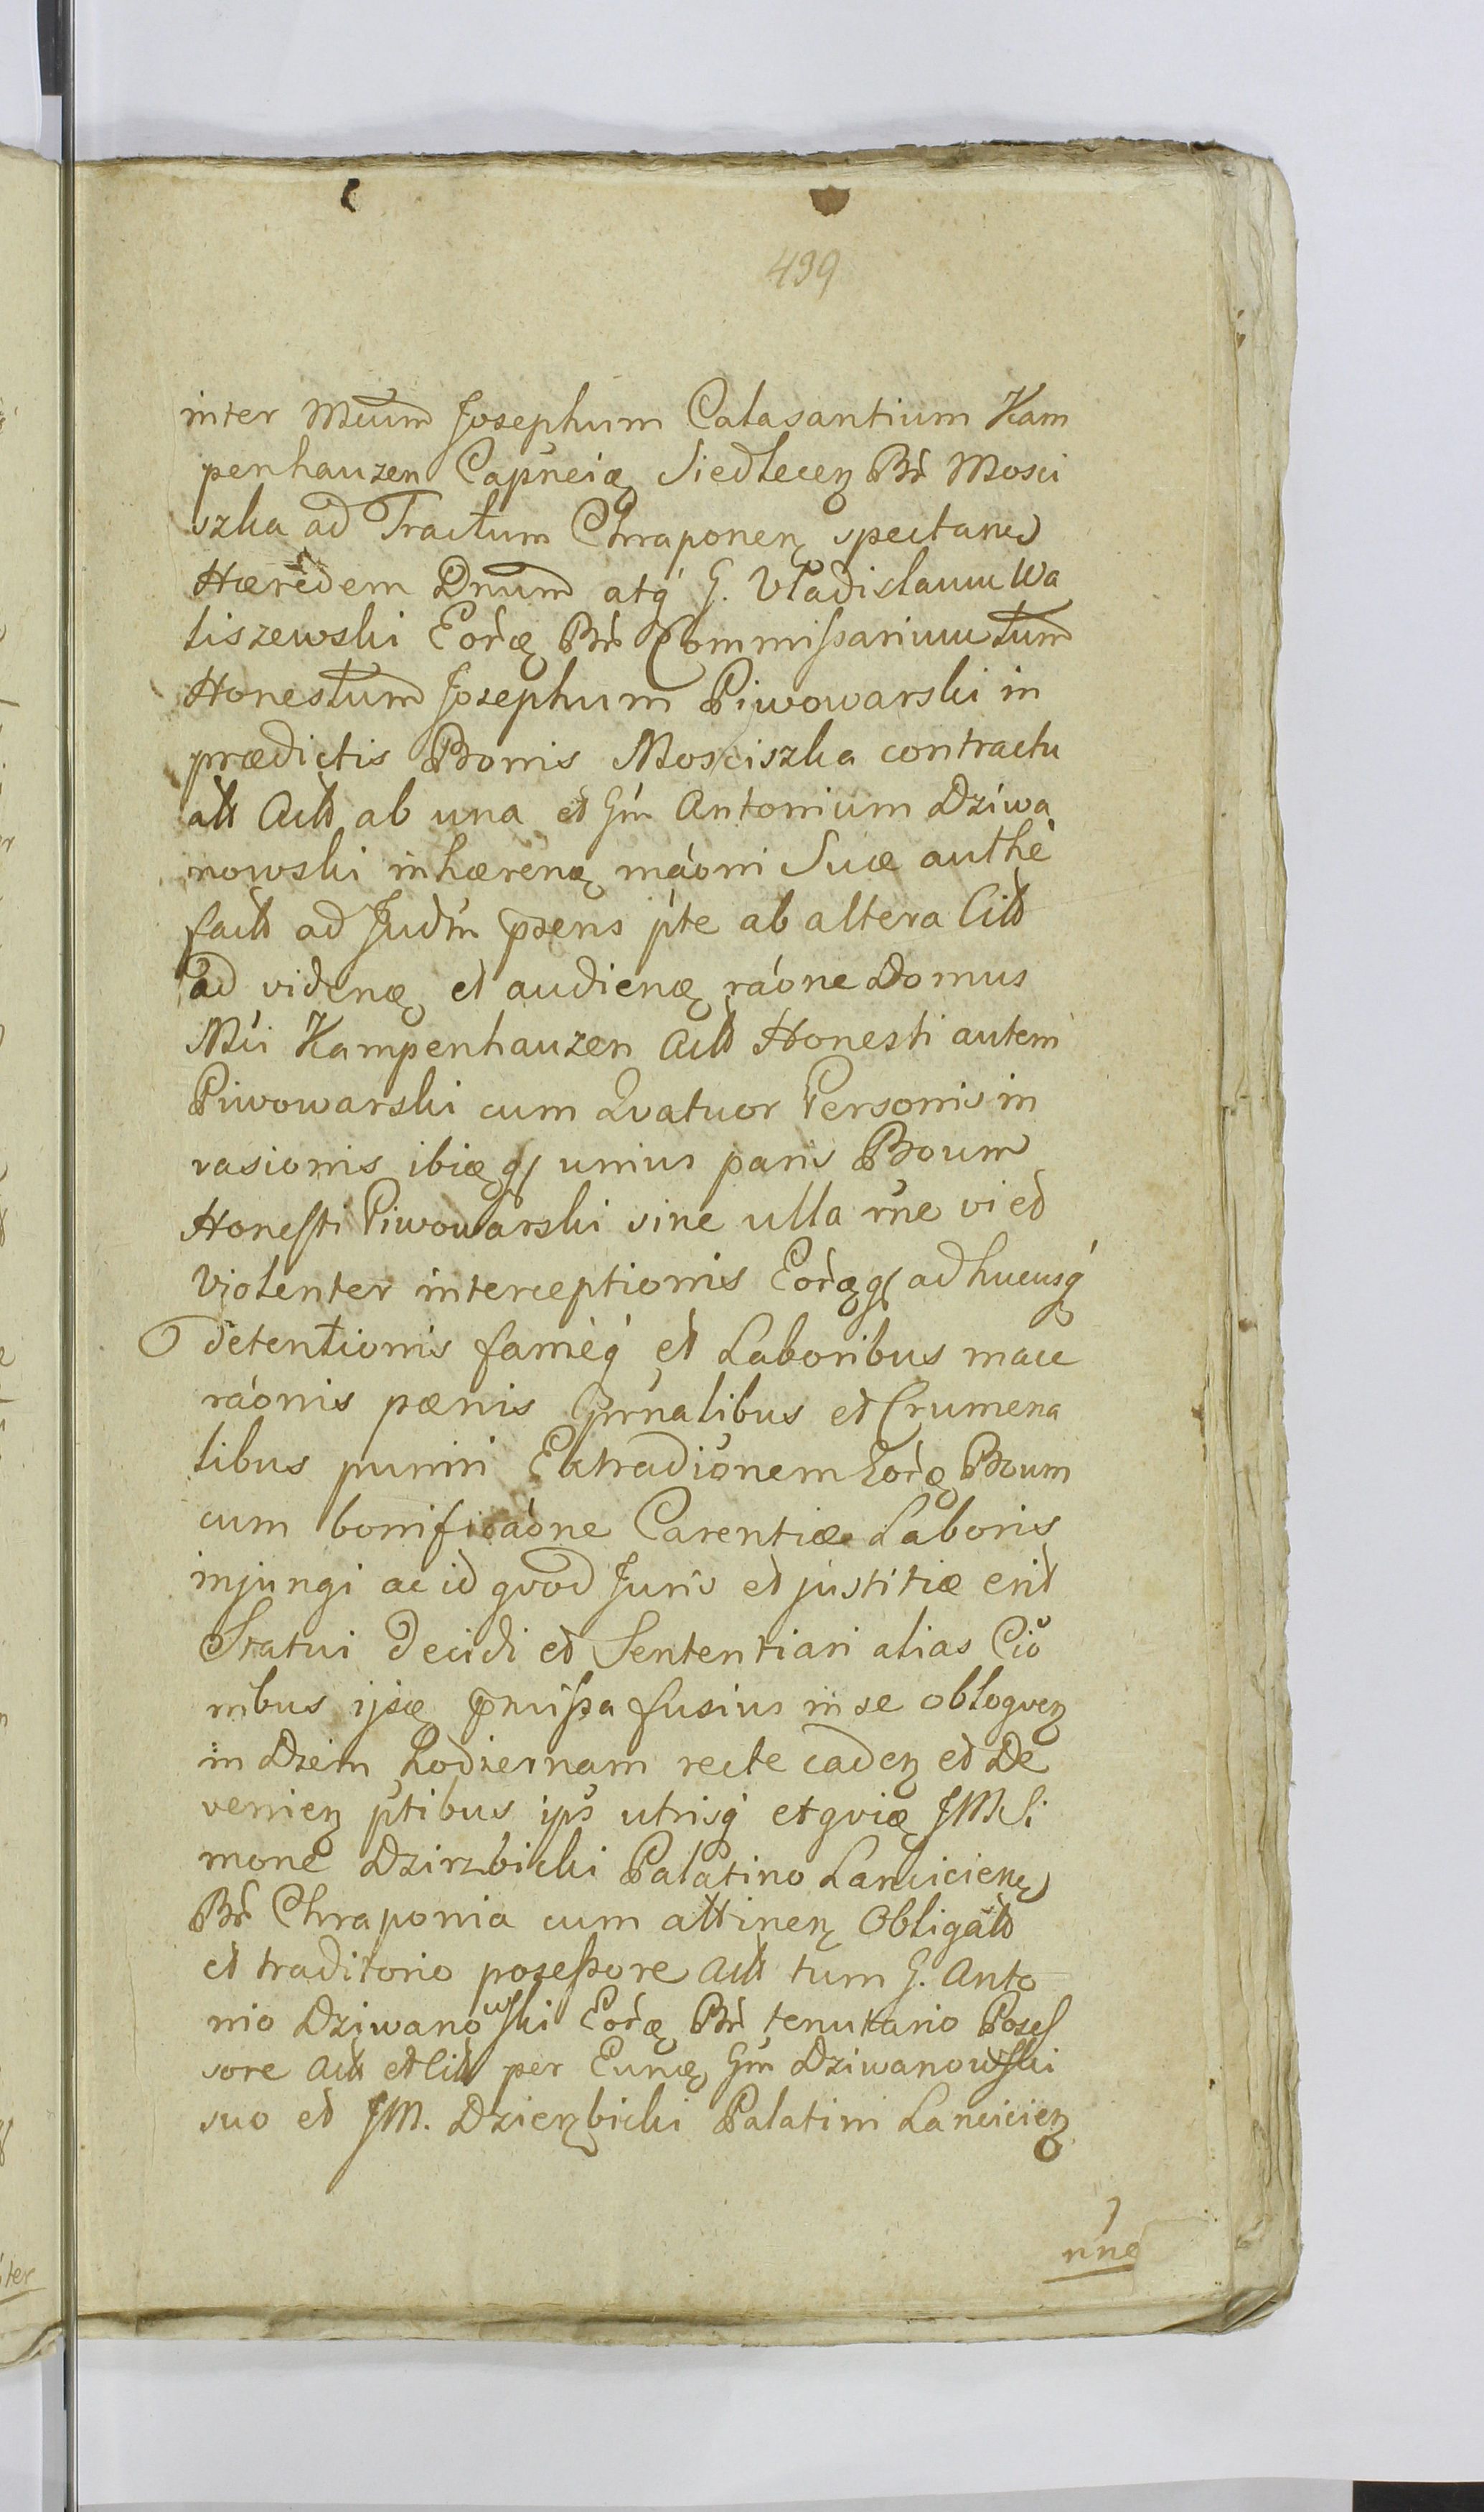 499
inter Mcum Josephum Calasantium Kam
penhauzen Capneią Siedlecen Br Mosci
szka ad Tractum Chraponen spectanes
Hæredem Dnum atq G. Vladislauu Wa
liszewski Eorą Br Commissariuu tum
Honestum Josephum Piwowarski in
prædictis Bonis Mosciszka contractu
alt Actt ab una et Gm Antonium Dziwa
nowski inhæreną máoni Suæ authe
fact ad Judm pzens pte ab altera Citt
ad videną et audieną ráone Domus
Mci Kampenhauzen Actt Honesti autem
Piwowarski cum Qvatuor Personis in
vasionis ibią q unius paris Boum
Honesti Piwowarski sine ulla rne vi et
violenter interceptionis Eorąq adhucusq
detentionis fameq et Laboribus mace
ráonis pænis Cprnalibus et Crumena
libus puniri Extradionem Eorą Boum
cum bonificáone Carentiæ Laboris
injungi ac id qvod Juris et justitiæ erit
Statui decidi et Sententiari alias Cio
nibus ijsą pmissa fusius in se obloqven
in Diem hodiernam recte caden et De
venien ptibus ips utrisq et qvią JM Si
mone Dzirzbicki Palatino Lancicien
Br Chraponia cum attinen Obligatt
et traditorio posessore Actt tum G. Anto
nio Dziwanowski Eorą Br tenutario Posses
sore Actt et Citt per Euną Gm Dziwanowski
suo et JM. Dzierzbicki Palatini Lancicien
nne